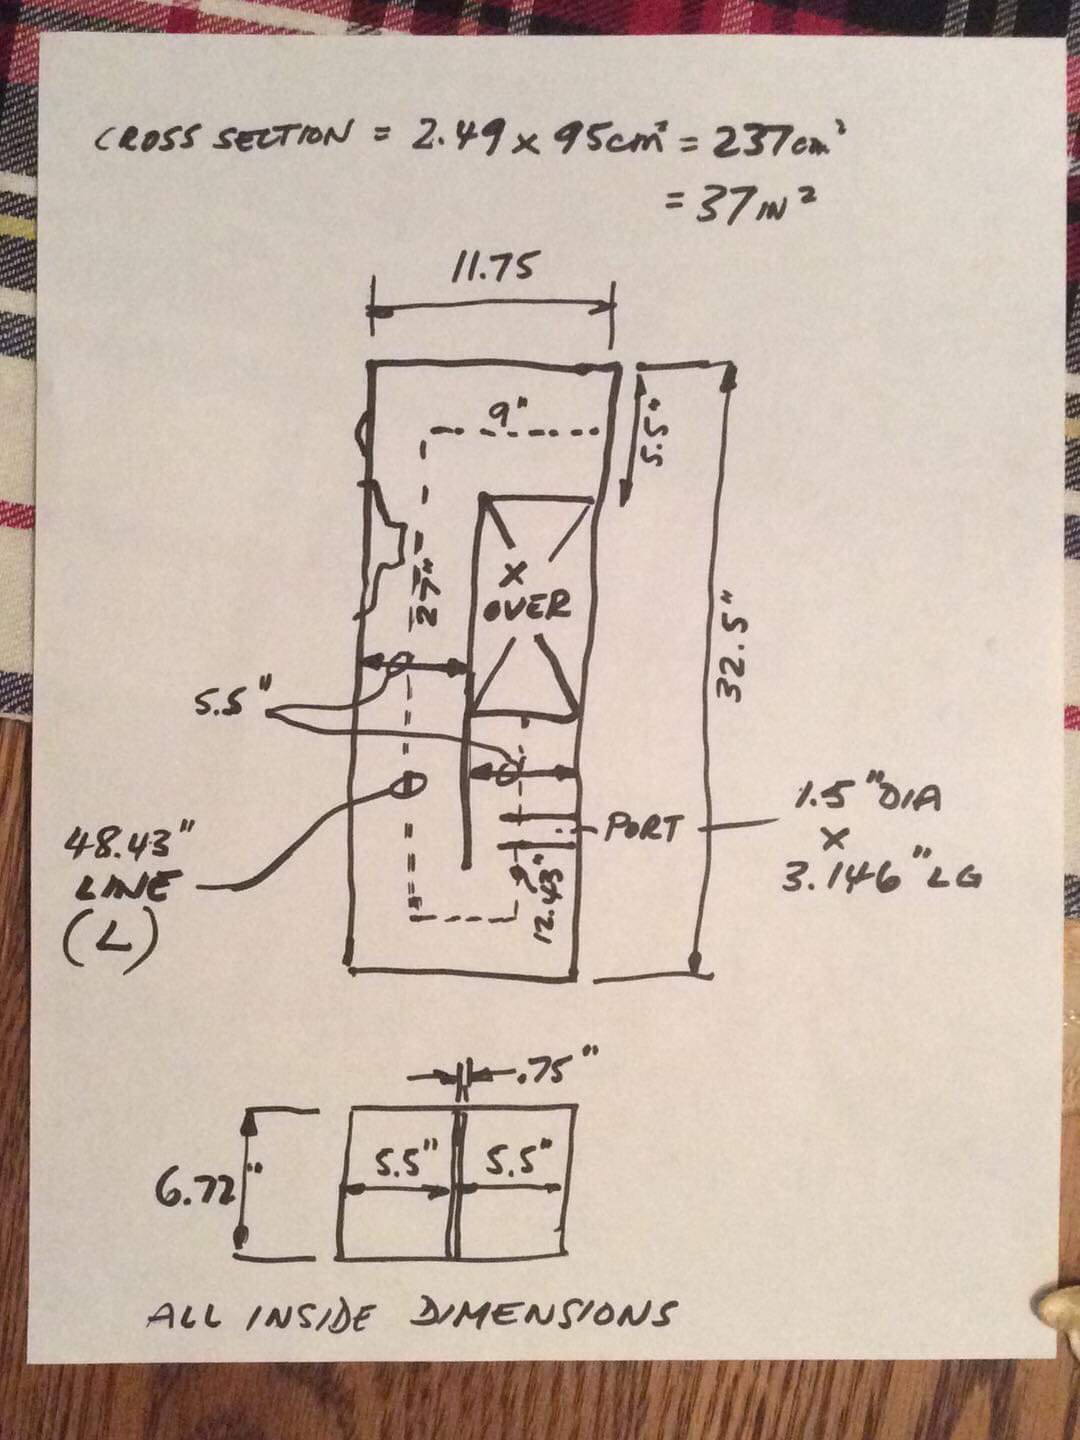 CROSS SECTION = 2.49 x 95cm² = 237cm²
= 37 IN²
11.75
9"
5.5"
27"
X
OVER
32.5"
5.5"
1.5" DIA
X
3.146" LG
PORT
48.43"
LINE
(L)
12.43"
.75"
6.72"
5.5" 5.5"
ALL INSIDE DIMENSIONS